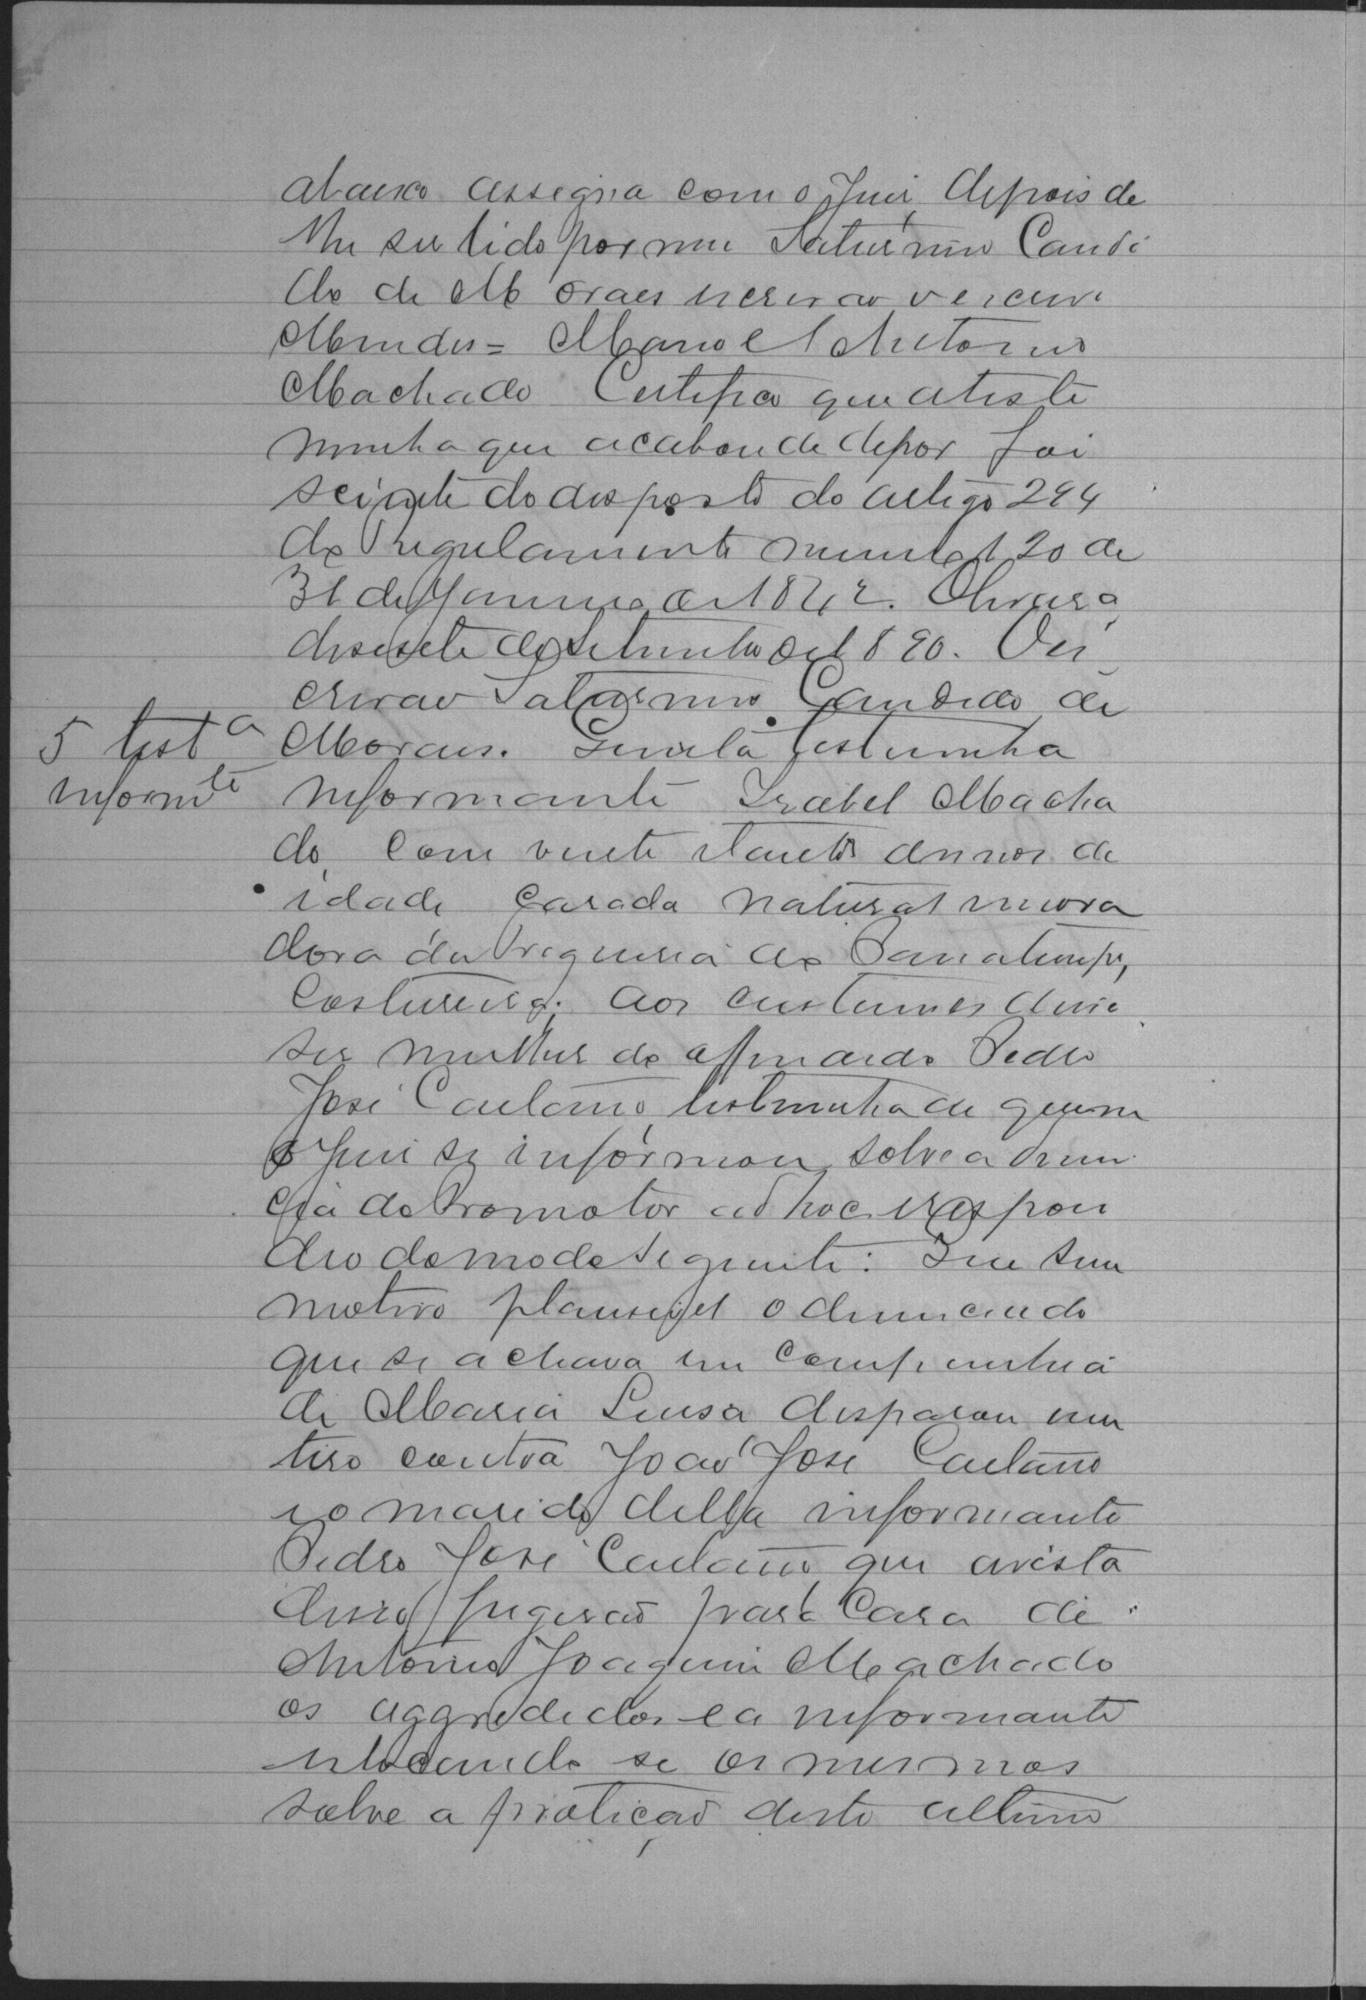 abaixo assigna com o Juiz depois de
lhe ser lido por mim Saturnino Candi
do de Moraes escrivão o escrevi
Mendes = Manoel Antonio
Machado Certifico que a teste
munha que acabou de depor foi
sciente do disposto do artigo 294
do regulamento numero 120 de
31 de Janeiro de 1842.
desesete de Setembro de 1890. O es
crivão Saturnino Candido de
5 test a
Moraes. Quinta testemunha
informte
informante Izabel Macha
do, com vinte e tantos annos de
idade casada natural e mora
dora da freguesia de
Costureira; aos costumes disse
ser mulher do offendido Pedro
José Caetano, testemunha de quem
o Juiz se informou sobre a denun
cia do Promotor ad hoc e respon
deo do modo seguinte: Que sem
motivo plausivel o denunciado
que se achava em companhia
de Maria Luisa disparou um
tiro contra João José Caetano
e o marido della informante
Pedro José Caetano, que a vista
disso fugirão para Casa de
Antonio Joaquim Machado
os aggredidos e a informante
se os mesmos
sobre a deste ultimo